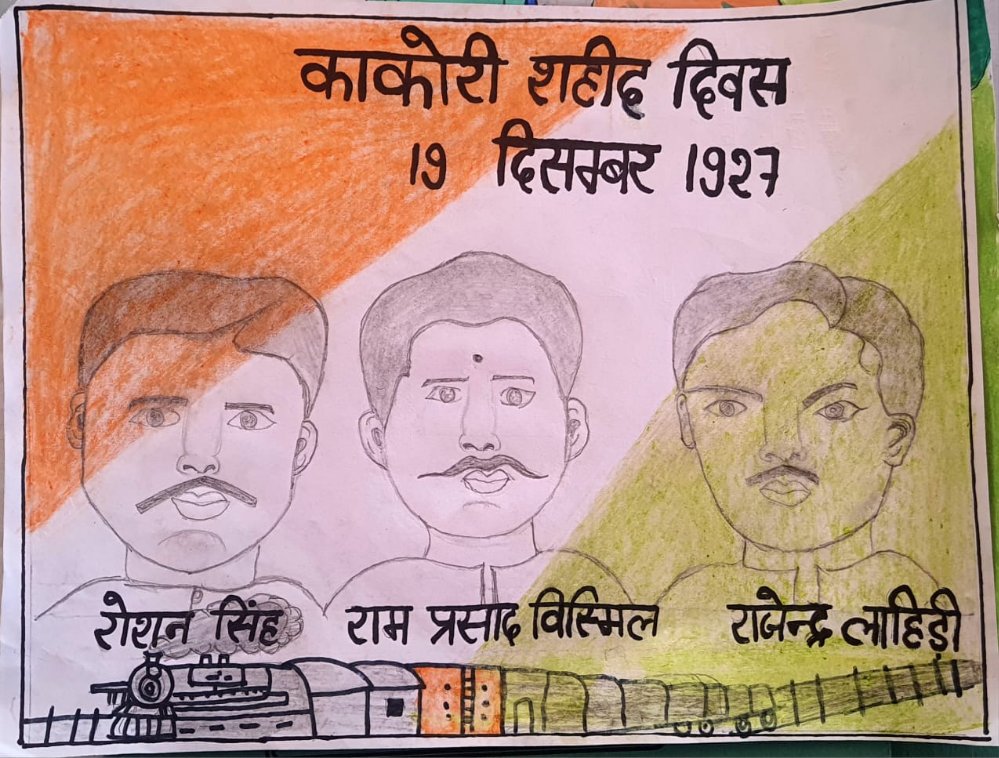 काकोरी शहीद दिवस
19 दिसम्बर 1927
रोशन सिंह राम प्रसाद विस्मिल राजेन्द्र लाहिडी